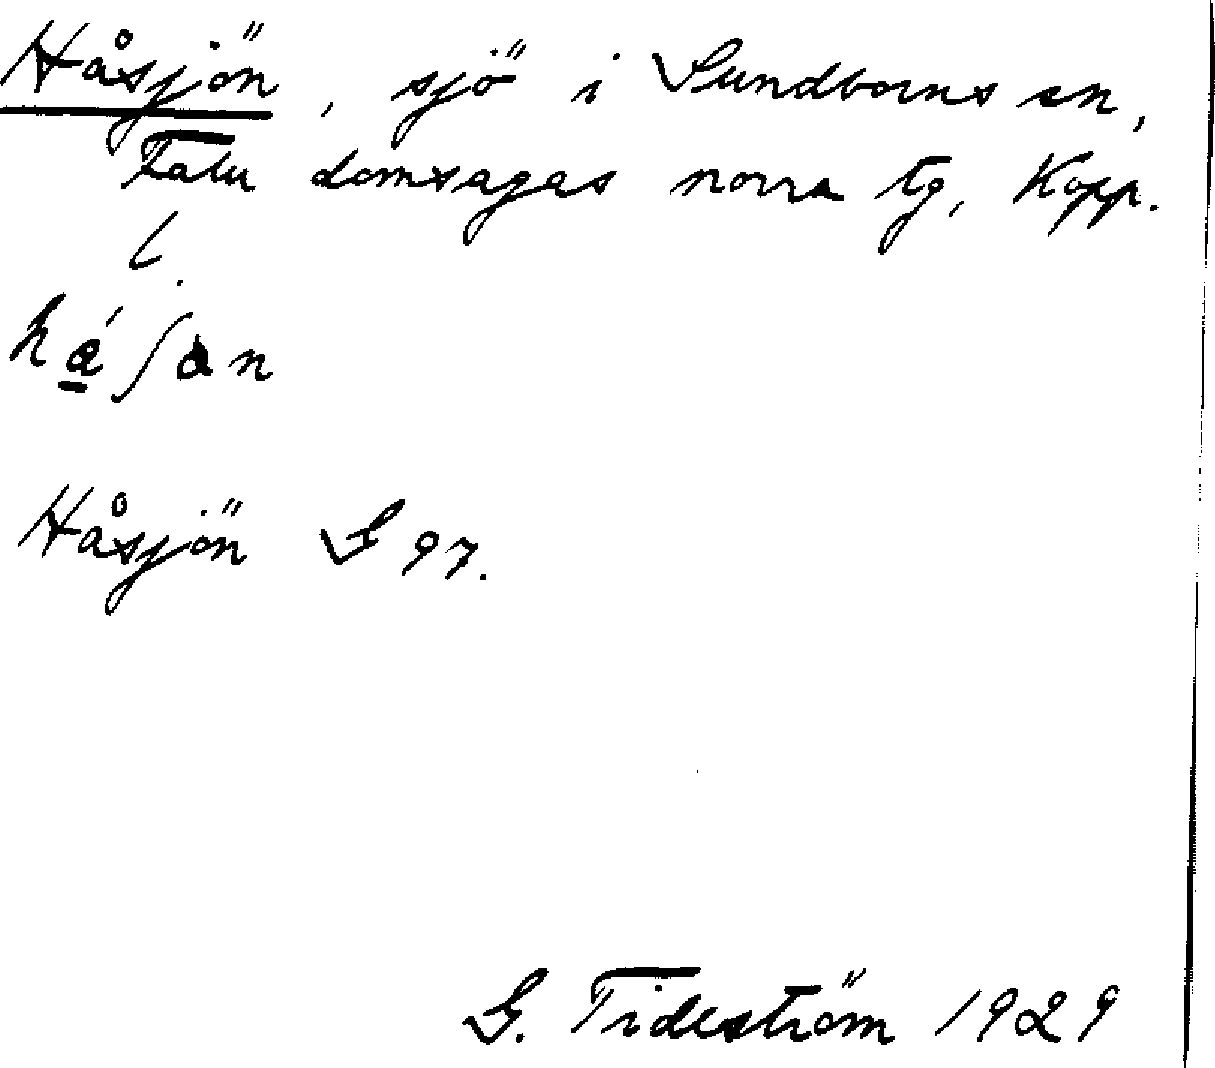 Håsjön, sjö i Sundborns sn,
Falu domsagas norra tg, Kopp.
l.
Håsjön S 97.
G. Tideström 1929